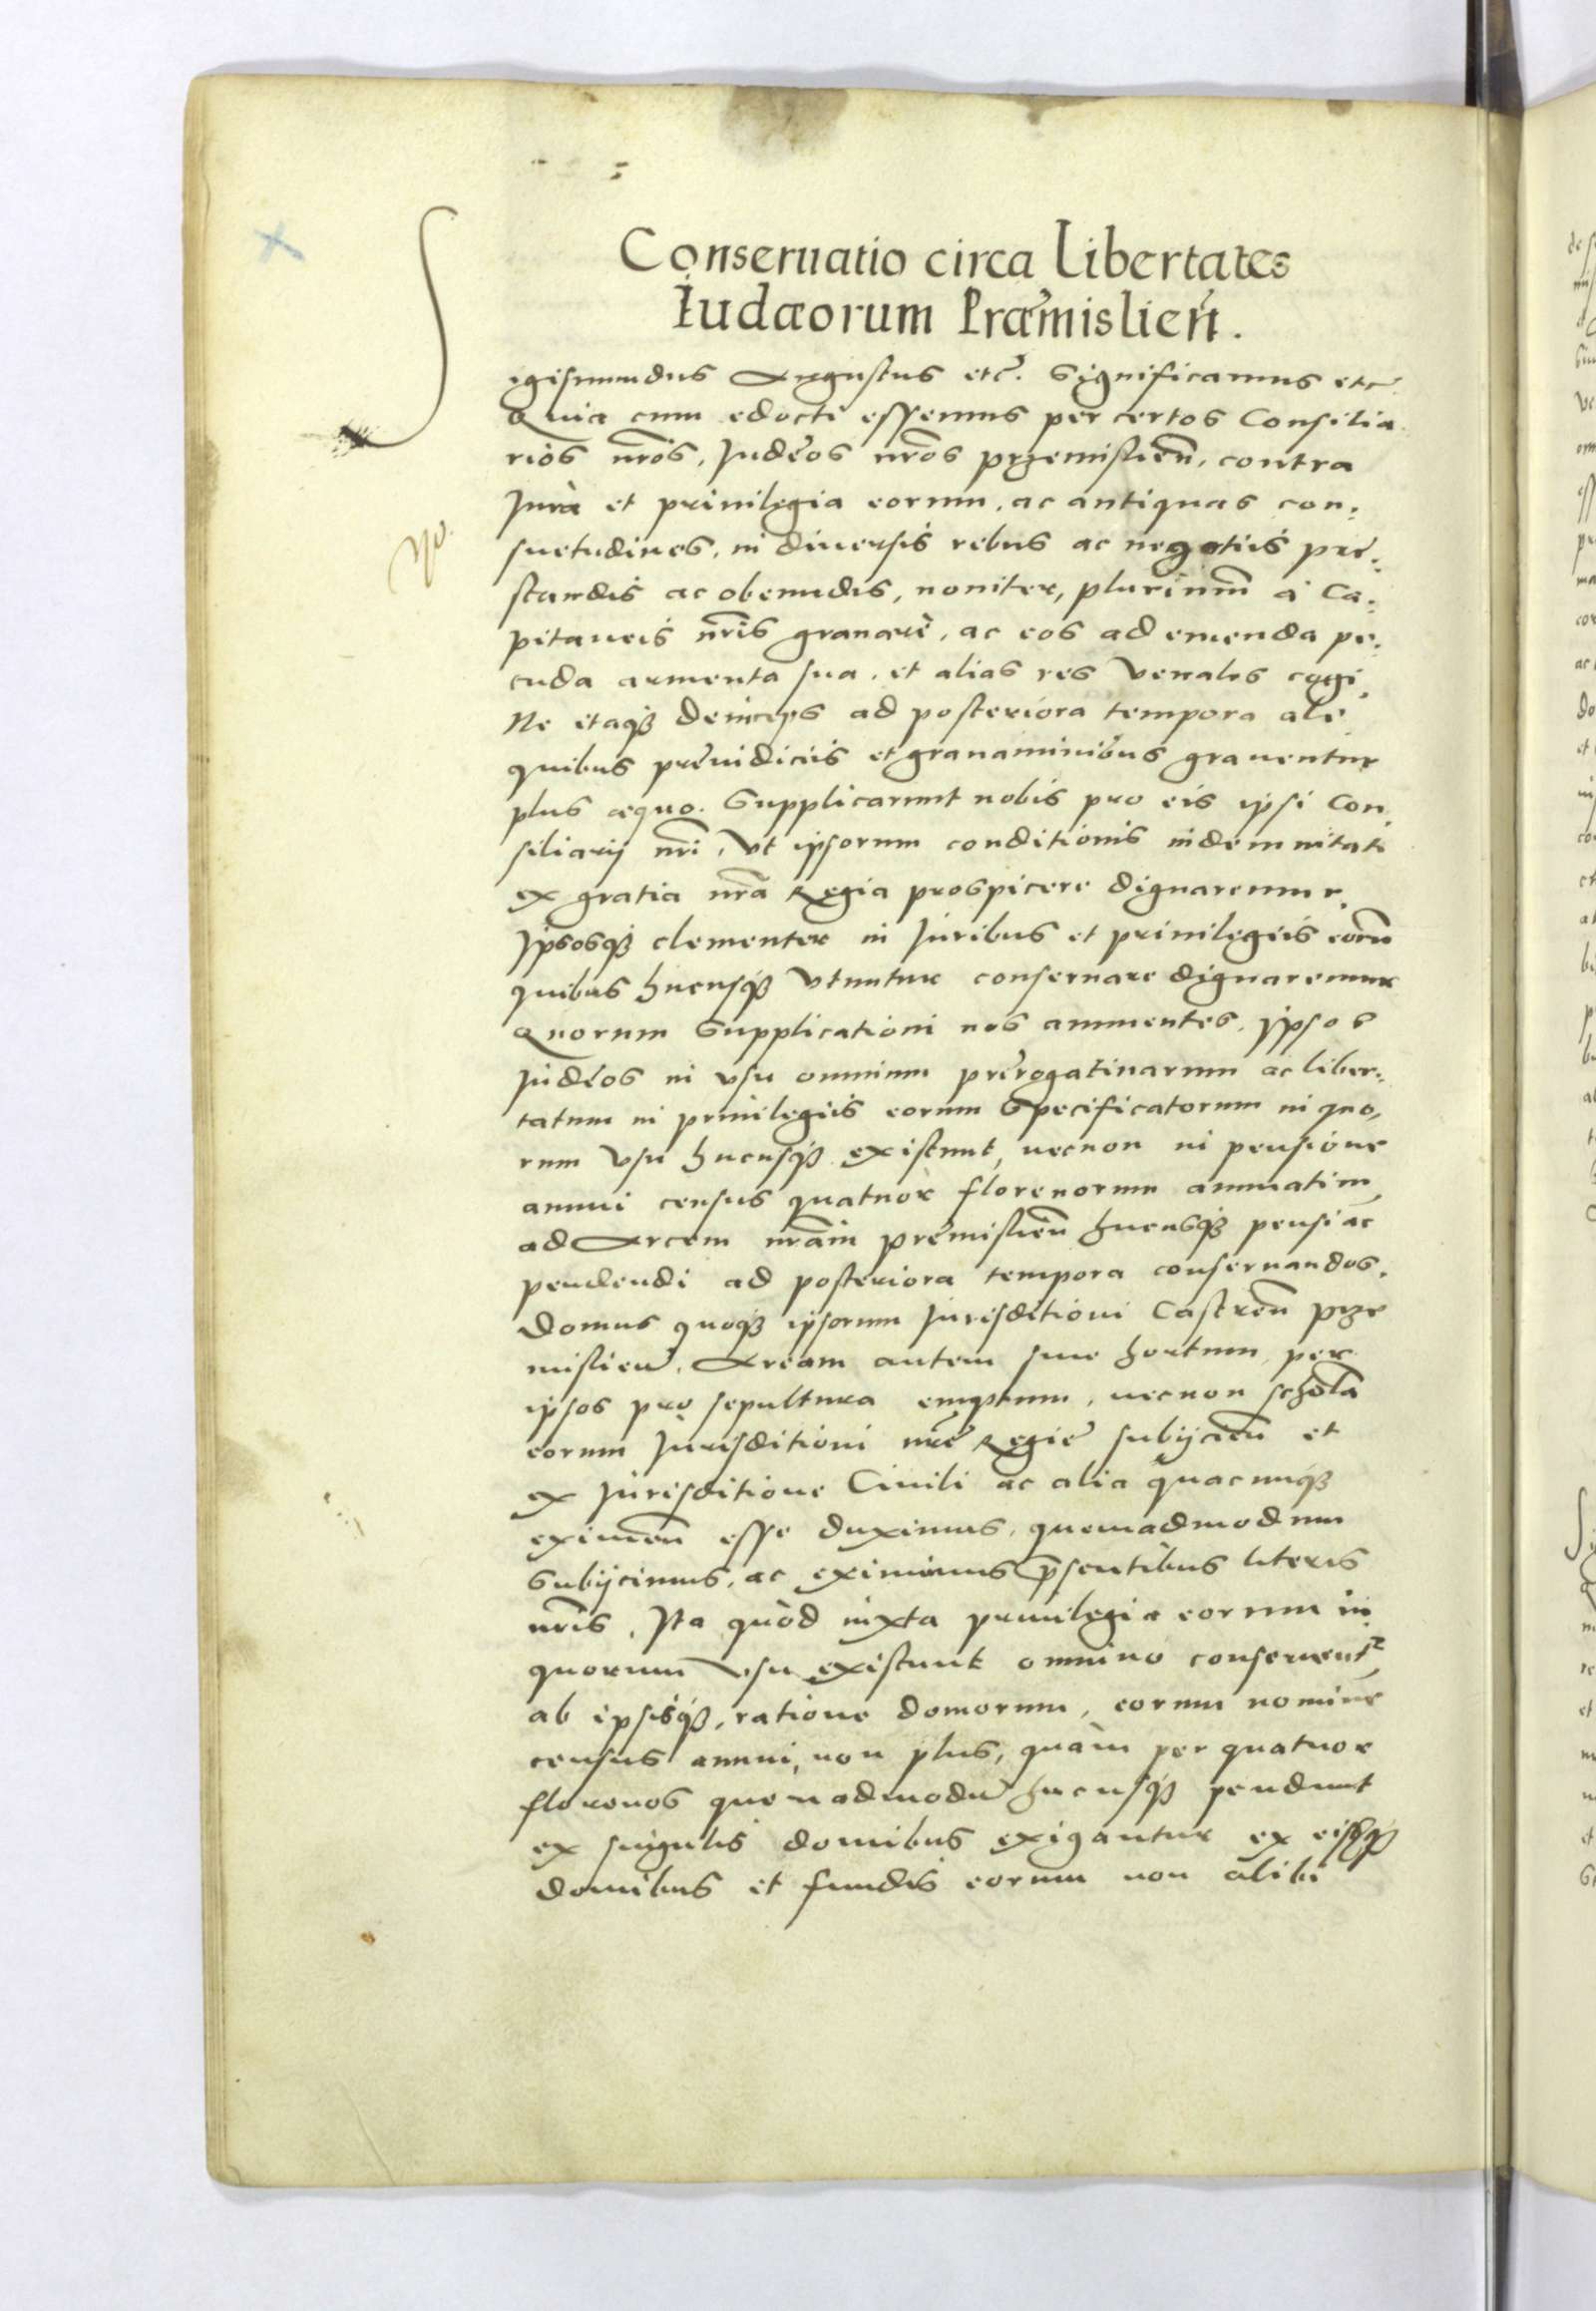 Conseruatio circa Libertates
Iudæorum Præmislien̄.
Sigismundus Augustus etc̄. Significamus etc̄
Quia cum edocti essemus per certos Consilia
rios nr̄os, Judęos nr̄os przemislien̄, contra
Jura et priuilegia eorum, ac antiquas con:
suetudines, in diuersis rebus ac negotiis pre:
standis ac obeundis, nouiter, plurimū à Ca:
pitaneis nr̄is grauari, ac eos ad emenda pe:
cuda armenta sua, et alias res venales cogi,
Ne itaqꝫ deinceps ad posteriora tempora ali
quibus preiudiciis et grauaminibus grauentur
plus æquo. Supplicarunt nobis pro eis ipsi Con
siliarij nr̄i, vt ipsorum conditionis indemnitati
ex gratia nr̄a Regia prospicere dignaremur,
Ipsosqꝫ clementer in Juribus et priuilegiis eorū
quibus hucusqꝫ vtuntur conseruare dignaremur
Quorum Supplicationi nos annuentes, Ipsos
Judęos in vsu omnium prerogatiuarum ac liber:
tatum in priuilegiis eorum Specificatorum in quo,
rum vsu hucusqꝫ existunt, necnon in pensione
annui census quatuor florenorum annuatim
ad Arcem nr̄am premislien̄ hucusqꝫ pensi ac
pendendi ad posteriora tempora conseruandos.
Domus quoqꝫ ipsorum Jurisditioni Castren̄ prze
mislien̄. Aream autem siue hortum per
ipsos pro sepultura emptum, necnon scholā
eorum Jurisditioni nr̄e Regie subijcien̄ et
ex Jurisditione Ciuili ac alia quacunqꝫ
eximen̄ esse duximus, quemadmodum
Subijcimus, ac eximimus p̄sentibus literis
nr̄is, Ita quòd iuxta priuilegia eorum in
quorum vsu existunt omnino conseruent͛
ab ipsisqꝫ, ratione domorum, eorum nomine
census annui, non plus, quàm per quatuor
florenos quemadmodū hucusqꝫ pendunt
ex singulis domibus exigantur ex eisqꝫ
domibus et fundis eorum non alibi